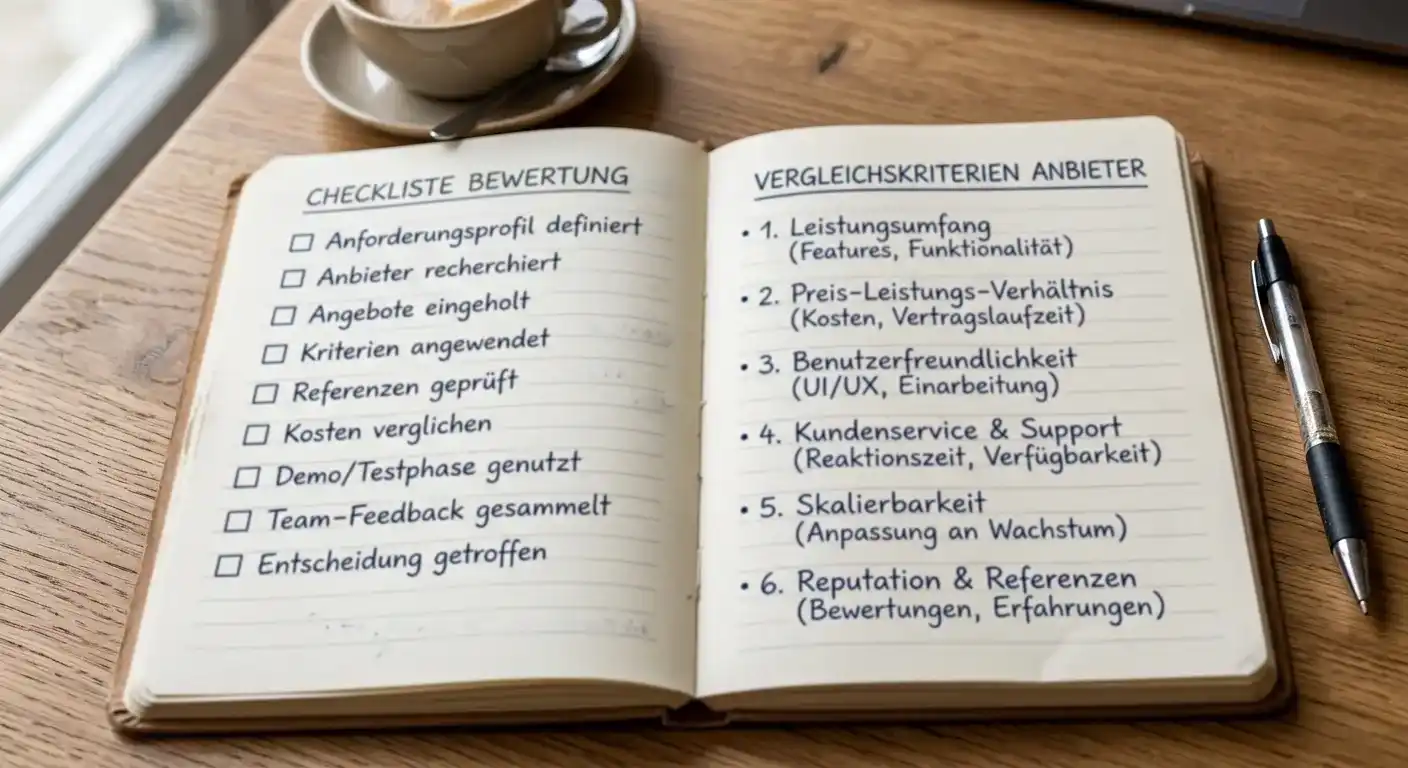 CHECKLISTE BEWERTUNG
☐ Anforderungsprofil definiert
☐ Anbieter recherchiert
☐ Angebote eingeholt
☐ Kriterien angewendet
☐ Referenzen geprüft
☐ Kosten verglichen
☐ Demo/Testphase genutzt
☐ Team-Feedback gesammelt
☐ Entscheidung getroffen
VERGLEICHSKRITERIEN ANBIETER
• 1. Leistungsumfang
(Features, Funktionalität)
• 2. Preis-Leistungs-Verhältnis
(Kosten, Vertragslaufzeit)
• 3. Benutzerfreundlichkeit
(UI/UX, Einarbeitung)
• 4. Kundenservice & Support
(Reaktionszeit, Verfügbarkeit)
• 5. Skalierbarkeit
(Anpassung an Wachstum)
• 6. Reputation & Referenzen
(Bewertungen, Erfahrungen)